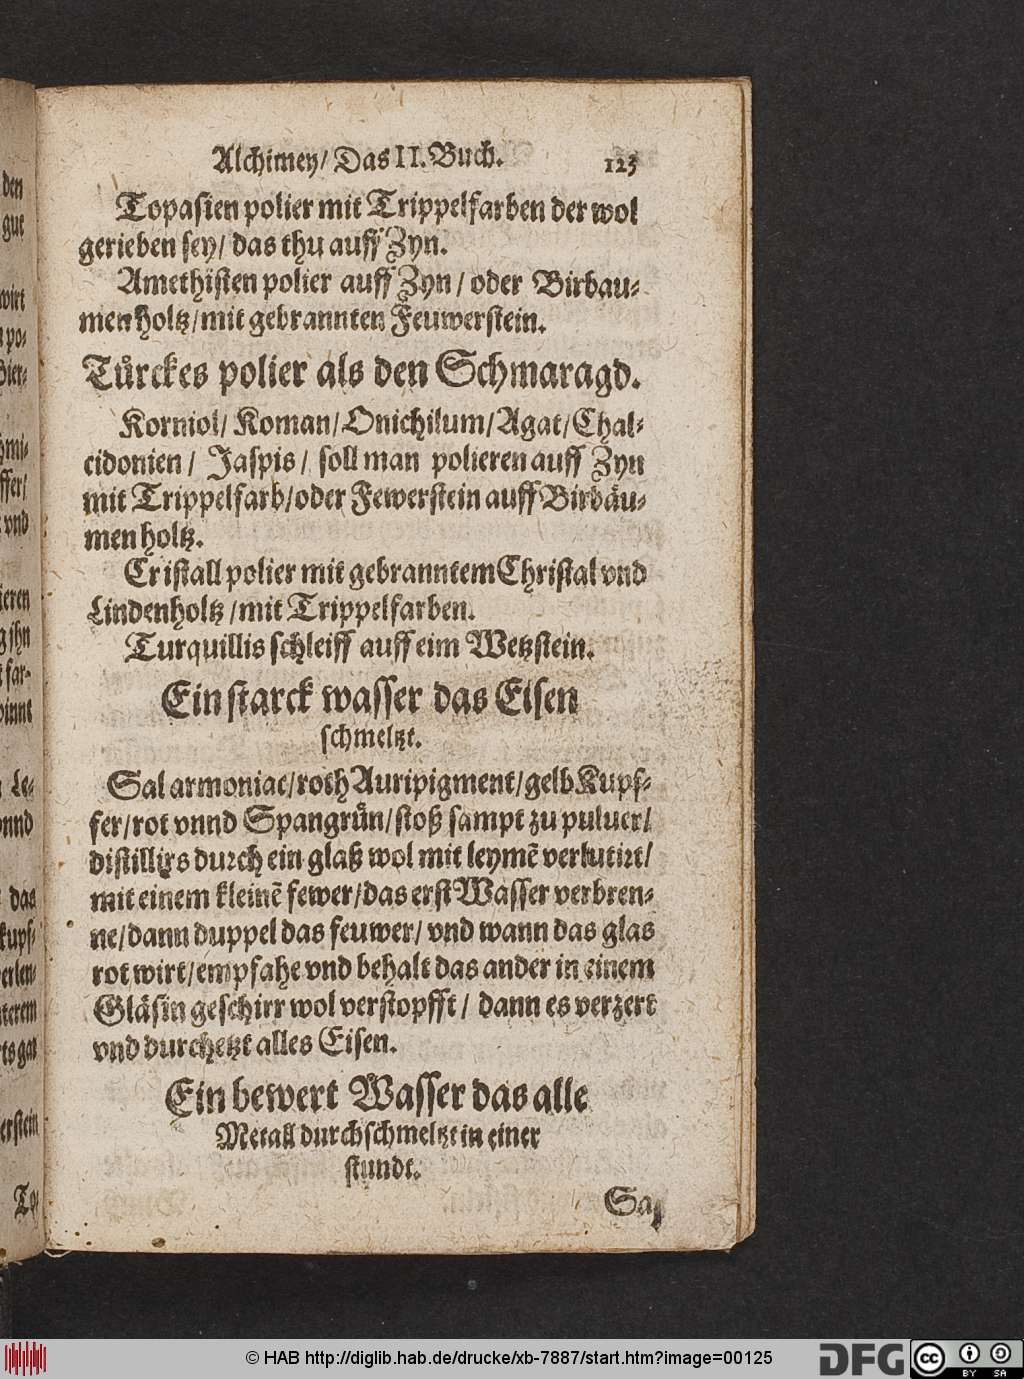 Alchimey/ Das II. Buch. 123
Topasien polier mit Trippelfarben der wol
gerieben sey/ das thu auff Zyn.
Amethisten polier auff Zyn / oder Birbau-
men holtz/ mit gebrannten Feuwerstein.
Tuͤrckes polier als den Schmaragd.
Korniol/ Koman/ Onichilum/ Agat/ Chal-
cidonien / Jaspis / soll man polieren auff Zyn
mit Trippelfarb/ oder Fewerstein auff Birbäu-
men holtz.
Cristall polier mit gebranntem Christal vnd
Lindenholtz / mit Trippelfarben.
Turquillis schleiff auff eim Wetzstein.
Ein starck wasser das Eisen
schmeltzt.
Sal armoniac/ roth Auripigment/ gelb Kupf-
fer/ rot vnnd Spangruͤn/ stoß sampt zu puluer/
distillirs durch ein glaß wol mit leymẽ verlutirt/
mit einem kleinẽ fewer/ das erst Wasser verbren-
ne/ dann duppel das feuwer/ vnd wann das glas
rot wirt/ empfahe vnd behalt das ander in einem
Gläsin geschirr wol verstopfft / dann es verzert
vnd durchetzt alles Eisen.
Ein bewert Wasser das alle
Metall durchschmeltzt in einer
stundt.
Sa
den
gut
wirt
po-
Bier-
ffer/
vnd
ieren
jhn
far-
Le-
onnd
das
kupf-
erstein
© HAB http://diglib.hab.de/drucke/xb-7887/start.htm?image=00125
DFG
cc BY SA